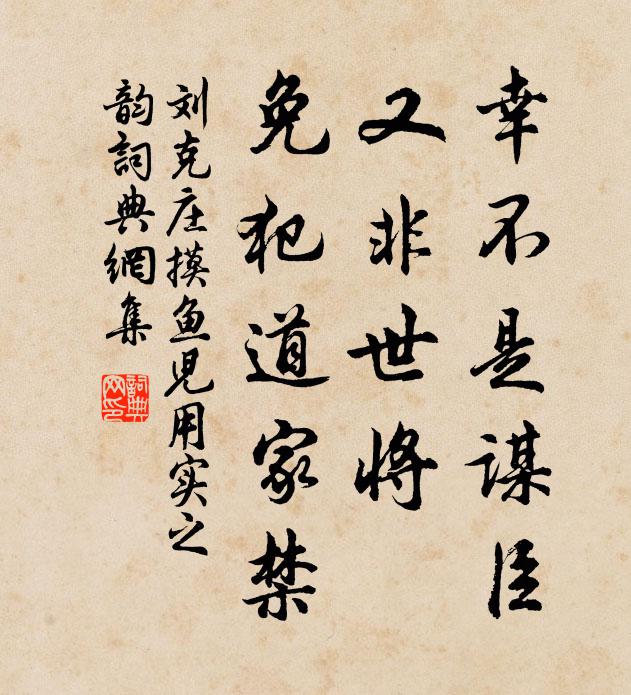 幸不是谋臣
又非世將
免犯道家禁
刘克庄摸鱼児用实之
韵詞典網集
詞典网印